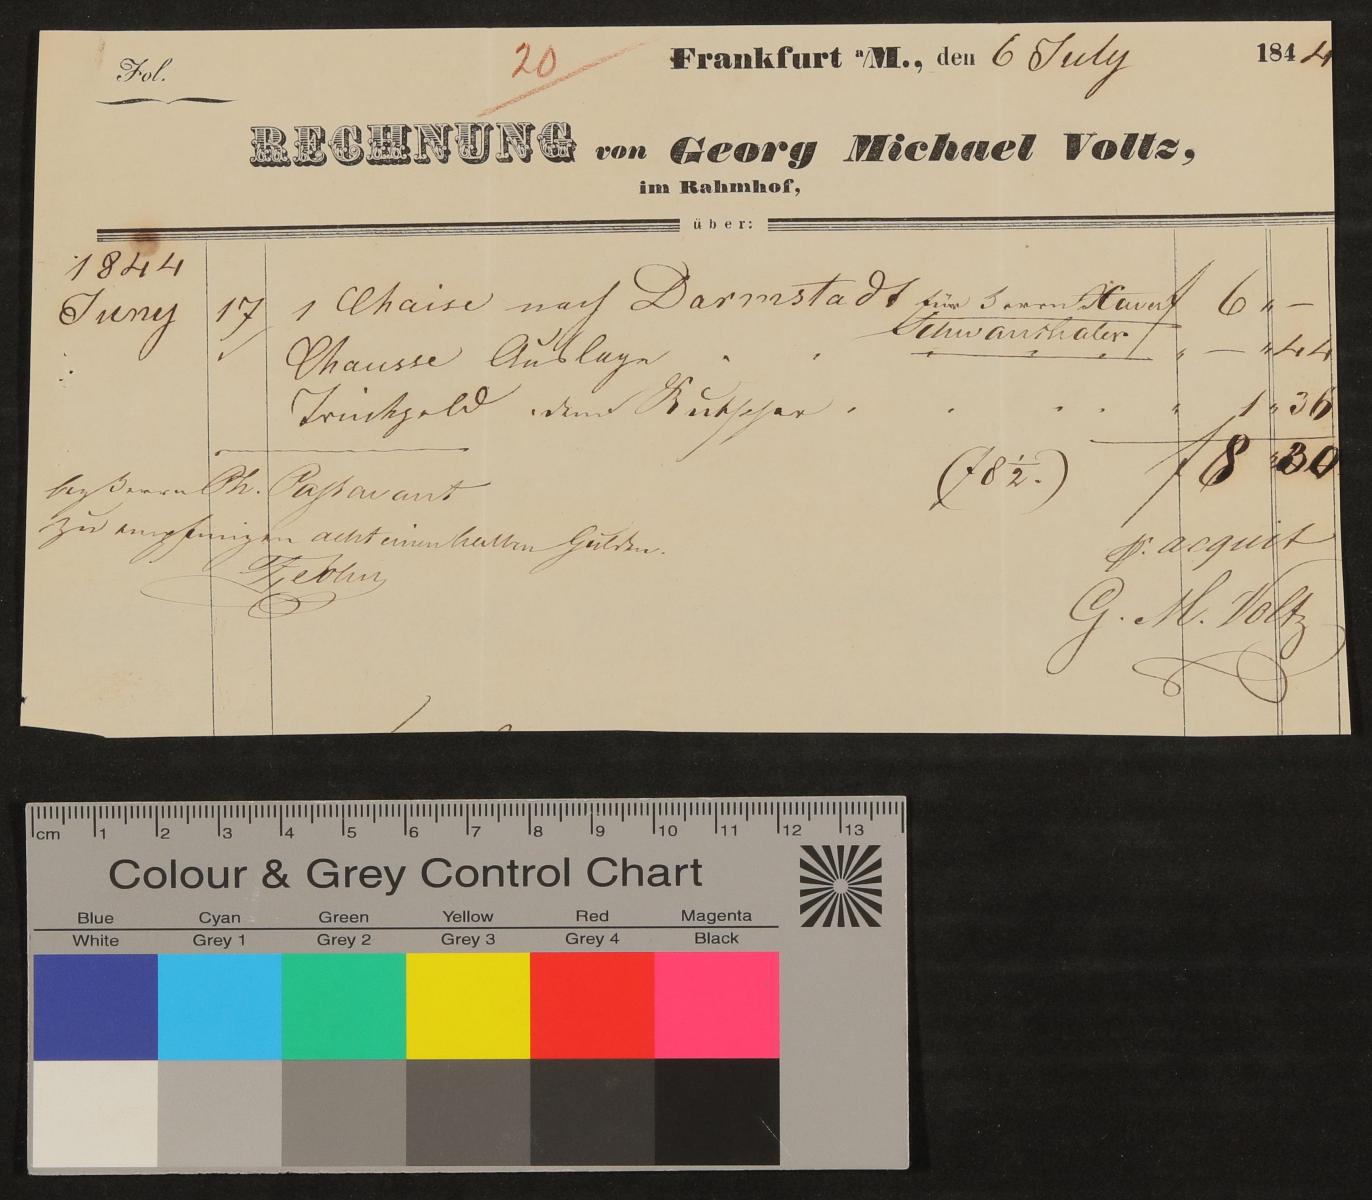 Fol.
20
Frankfurt a/M., den 6 July 1844
RECHNUNG von Georg Michael Voltz,
im Rahmhof,
über:
1844
Juny 17 1 Chaise nach Darmstadt für Herrn Xaver f 6 " —
Schwanthaler
Chausse Auslage " — " 44
Trinkgeld dem Kutscher " 1 " 36
(f 8 1/2.) f 8 " 30
bey Herrn Ph. Passavant
zu empfangen achteinenhalben Gulden.
p. acquit
G. M. Voltz
cm 1 2 3 4 5 6 7 8 9 10 11 12 13
Colour & Grey Control Chart
Blue Cyan Green Yellow Red Magenta
White Grey 1 Grey 2 Grey 3 Grey 4 Black